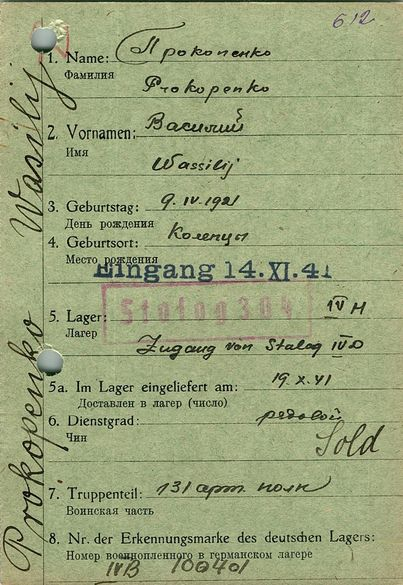 612
1. Name: Прокопенко
Фамилия
Prokopenko
2. Vornamen: Василий
Имя
Wassilij
3. Geburtstag: 9. IV. 1921
День рождения
4. Geburtsort: Колепцы
Место рождения
Eingang 14. XI. 41
Stalag 304
5. Lager: IV H
Лагер
Zugang von Stalag IV D
5a. Im Lager eingeliefert am: 19. X. 41
Доставлен в лагер (число)
6. Dienstgrad: редовой
Чин
Sold
7. Truppenteil: 131 арт. полк
Воинская часть
8. Nr. der Erkennungsmarke des deutschen Lagers:
Номер военнопленного в германском лагере
IVB 100401
Prokopenko Wasilij